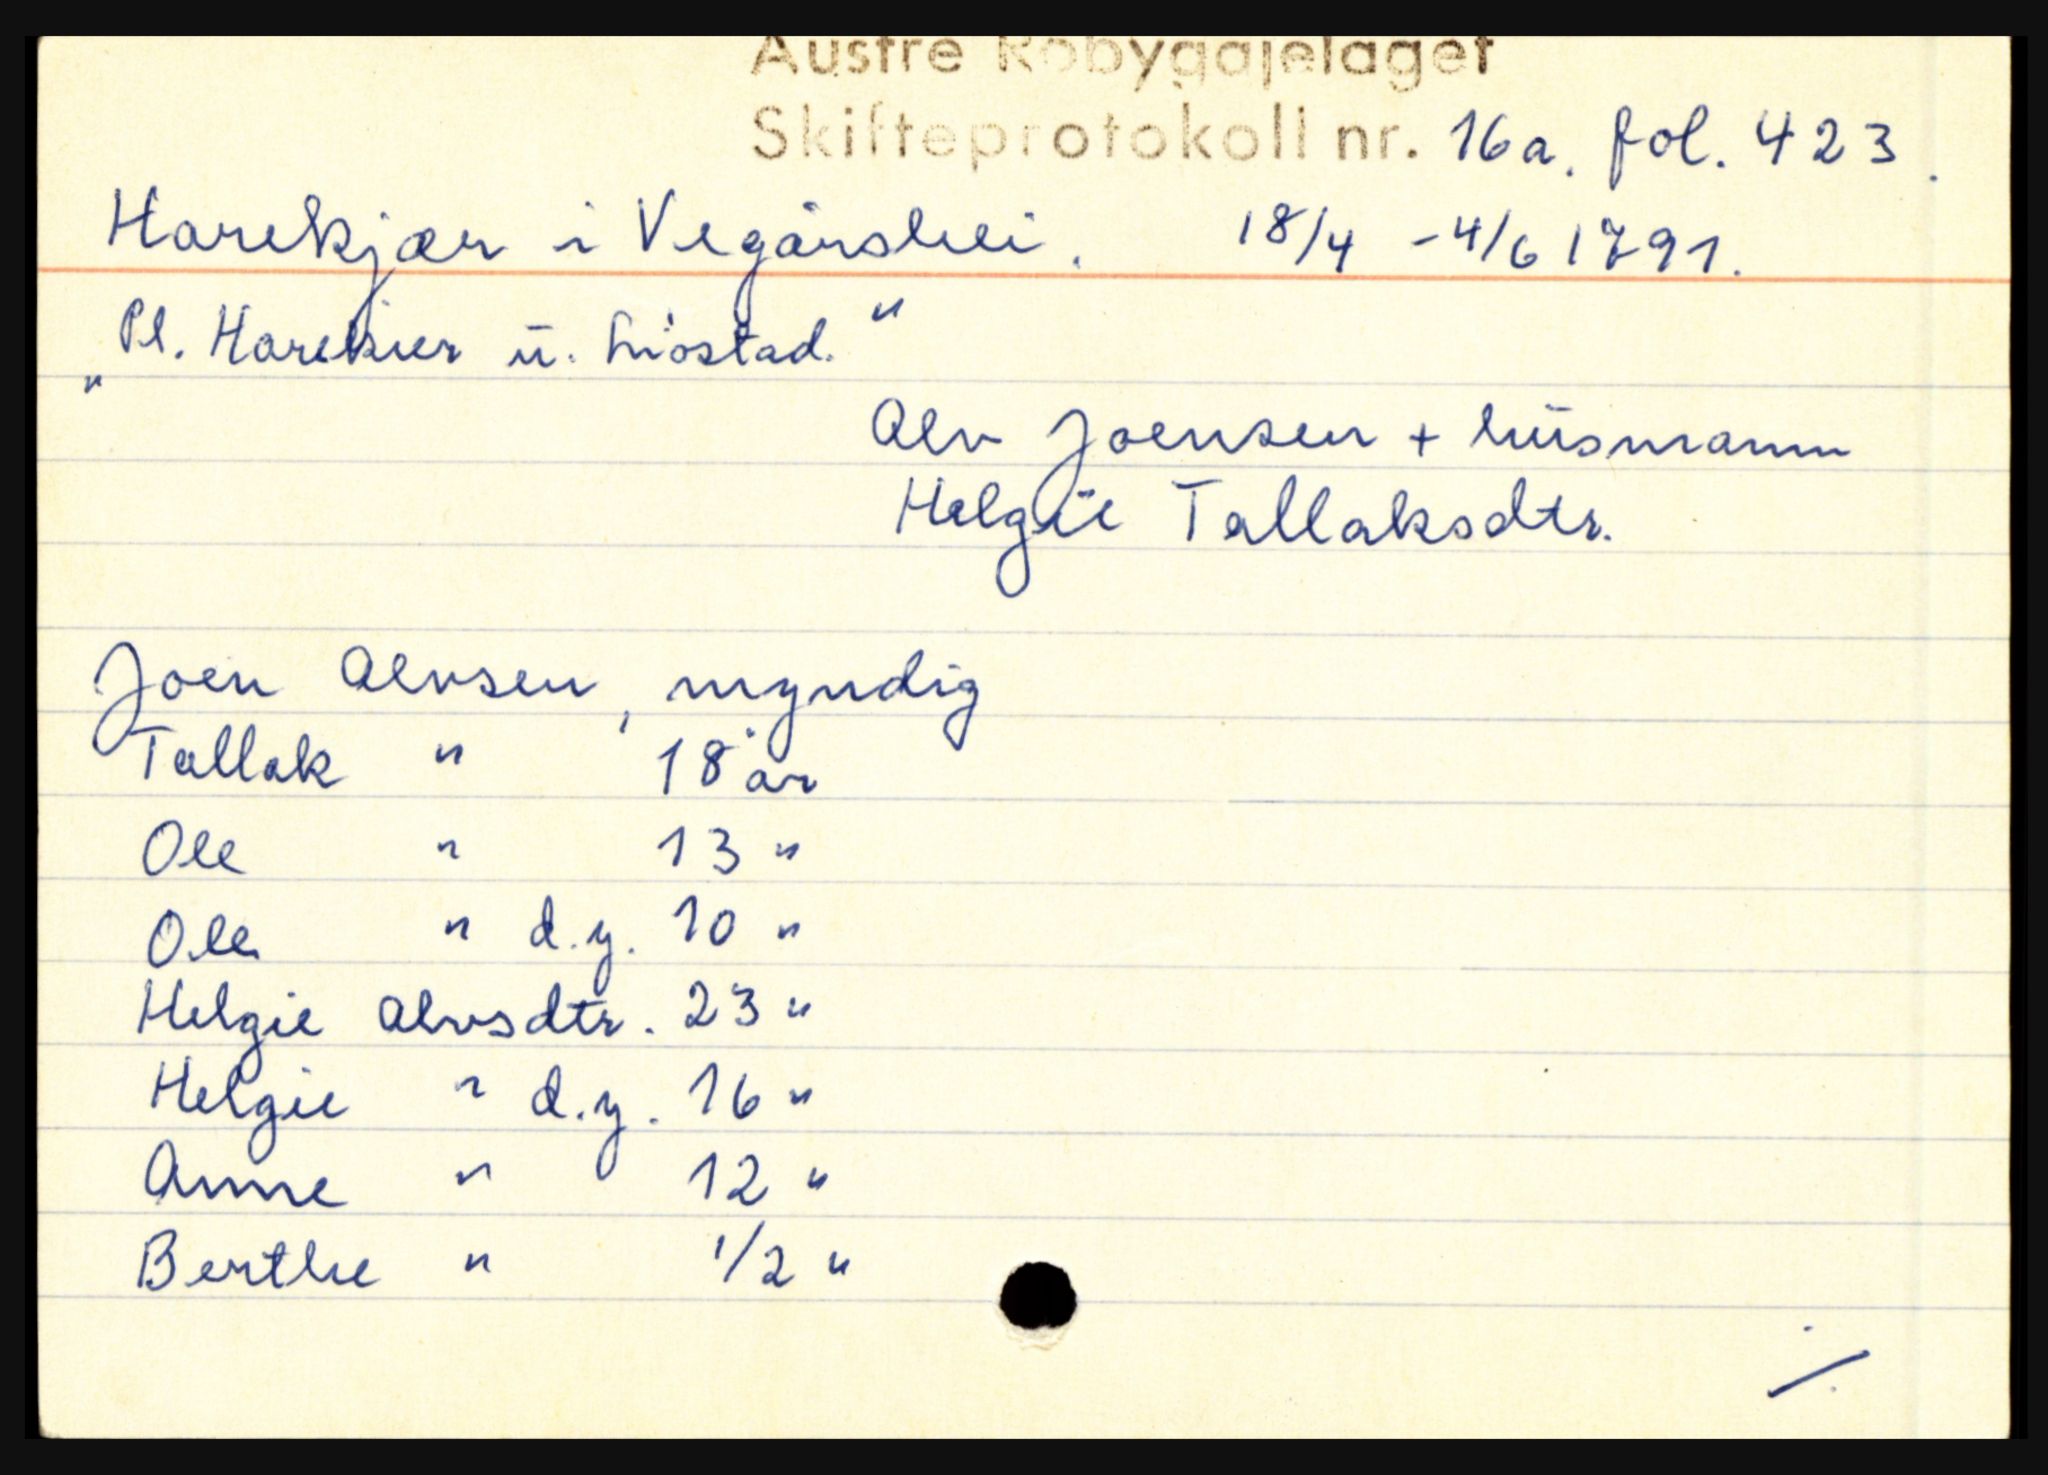 Austre Robygdjelaget
Skifteprotokoll nr. 16a. fol. 423.
Harekjær i Vegårshei. 18/4 - 4/6 1791.
"Pl. Harekier u. Liostad."
Alv Joensen + husmann
Helgie Tallaksdtr.
Joen Alvsen, myndig
Tallak " 18 år
Ole " 13 "
Ole " d.y. 10 "
Helgie Alvsdtr. 23 "
Helgie " d.y. 16 "
Anne " 12 "
Berthe " 1/2 "
./.